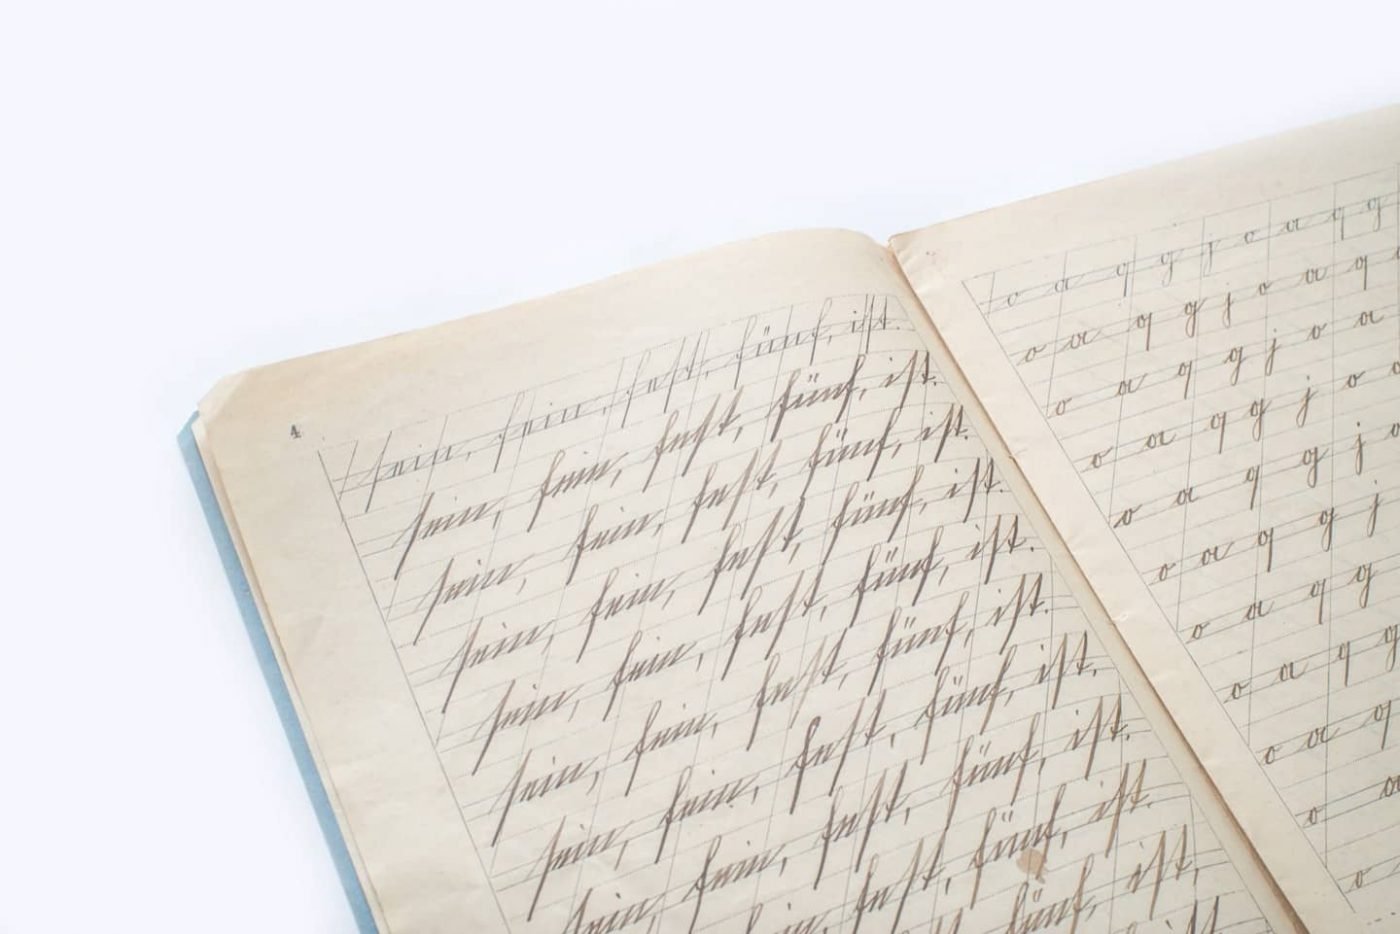 4
sein, fein, fest, fünf, ist.
sein, fein, fest, fünf, ist.
sein, fein, fest, fünf, ist.
sein, fein, fest, fünf, ist.
sein, fein, fest, fünf, ist.
sein, fein, fest, fünf, ist.
sein, fein, fest, fünf, ist.
sein, fein, fest, fünf, ist.
fein, fest, fünf, ist.
fünf, ist,
ist
o a q g j o a q g
o a q g j o a q
o a q g j o a
o a q g j o
o a q g j o
o a q g j
o a q g
o a q g
o a q
o a
o